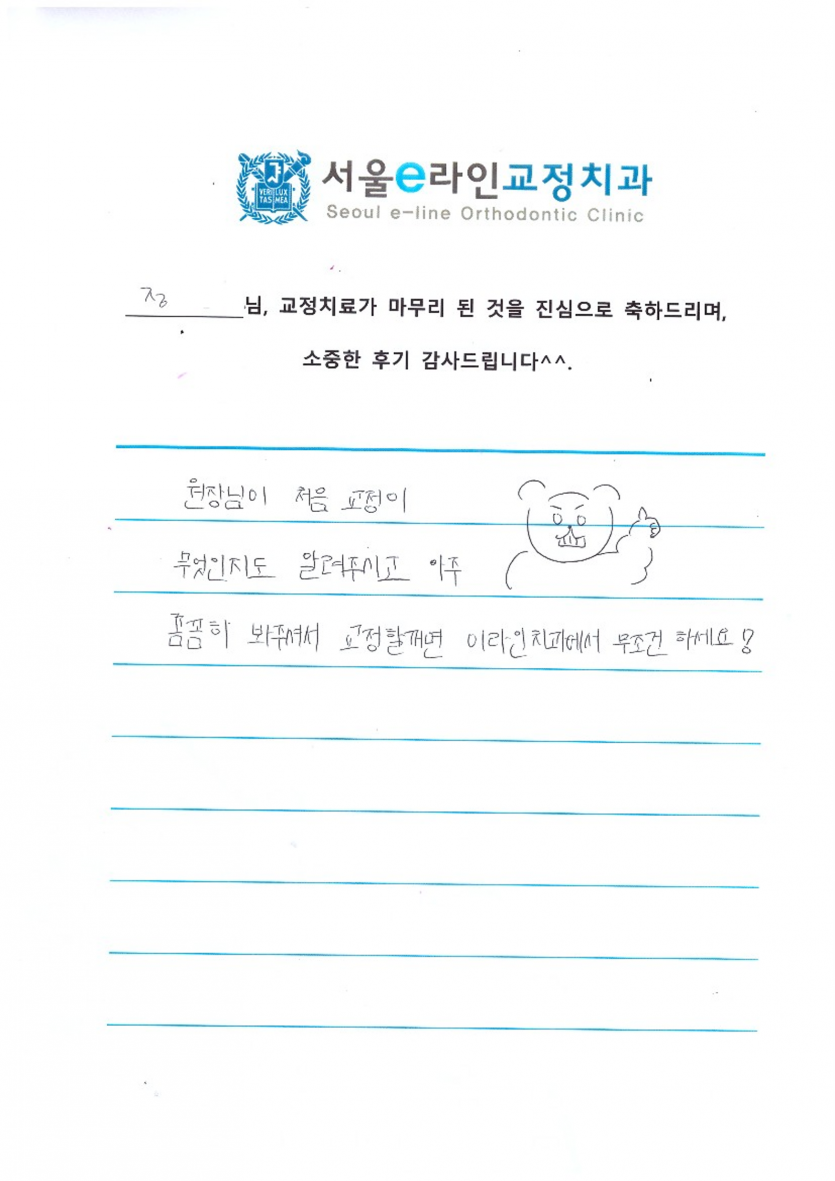 VERI LUX TAS MEA
서울e라인교정치과
Seoul e-line Orthodontic Clinic
정 님, 교정치료가 마무리 된 것을 진심으로 축하드리며,
소중한 후기 감사드립니다^^.
원장님이 처음 교정이
무엇인지도 알려주시고 아주
꼼꼼히 봐주셔서 교정할꺼면 이라인치과에서 무조건 하세요!